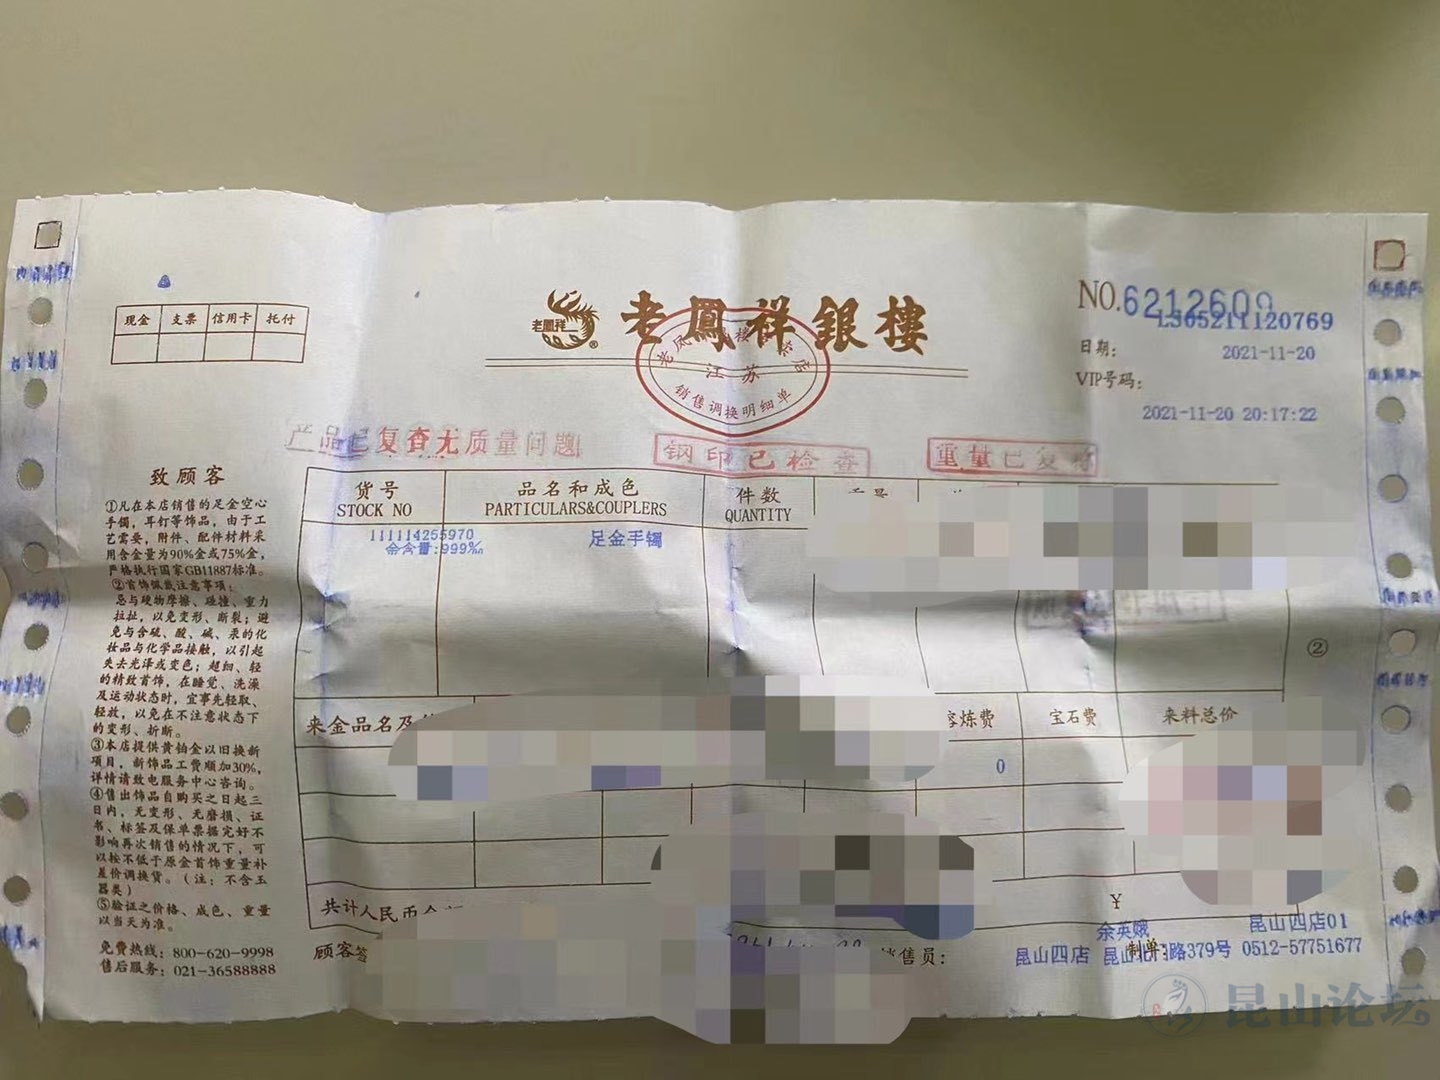 现金 支票 信用卡 托付
老鳳祥
®
老鳳祥銀樓
江苏
销售调换明细单
NO.
L305211120769
日期: 2021-11-20
VIP号码:
2021-11-20 20:17:22
产品已复查无质量问题
钢印已检查
重量已复称
致顾客
①凡在本店销售的足金空心
手镯，耳钉等饰品，由于工
艺需要，附件、配件材料采
用含金量为90%金或75%金，
严格执行国家GB11887标准。
②首饰佩戴注意事项：
忌与硬物摩擦、碰撞、重力
拉扯，以免变形、断裂；避
免与含硫、酸、碱、汞的化
妆品与化学品接触，以引起
失去光泽或变色；超细、轻
的精致首饰，在睡觉、洗澡
及运动状态时，宜事先轻取、
轻放，以免在不注意状态下
的变形、折断。
③本店提供黄铂金以旧换新
项目，新饰品工费顺加30%，
详情请致电服务中心咨询。
④售出饰品自购买之日起三
日内，无变形、无磨损、证
书、标签及保单票据完好不
影响再次销售的情况下，可
以按不低于原金首饰重量补
差价调换货。（注：不含玉
器类）
⑤验证之价格、成色、重量
以当天为准。
免费热线：800-620-9998
售后服务：021-36588888
货号 品名和成色 件数
STOCK NO PARTICULARS&COUPLERS QUANTITY
111114255970 足金手镯
金含量:999‰
②
来金品名及 熔炼费 宝石费 来料总价
0
共计人民币 ¥
顾客签 销售员: 制单:
余英娥 昆山四店01
昆山四店 路379号 0512-57751677
昆山论坛